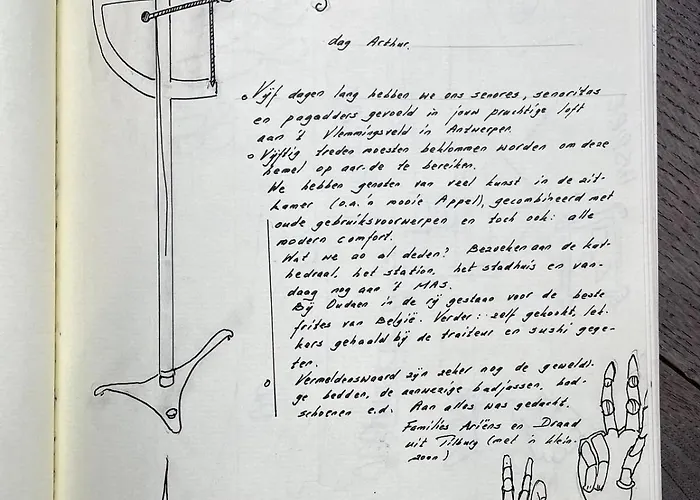 dag Arthur.
Vijf dagen lang hebben we ons senores, senoritas
en pagadders gevoeld in jouw prachtige loft
aan 't Vlemmingsveld in Antwerpen.
Vijftig treden moesten beklommen worden om deze
hemel op aarde te bereiken.
We hebben genoten van veel kunst in de zit-
kamer (o.a. 'n mooie Appel), gecombineerd met
oude gebruiksvoorwerpen en toch ook: alle
modern comfort.
Wat we zo al deden? Bezoeken aan de kat-
hedraal, het station, het stadhuis en van-
daag nog aan 't MAS.
Bij in de rij gestaan voor de beste
frites van België. Verder: zelf gekookt, lek-
kers gehaald bij de traiteur en sushi gege-
ten.
Vermeldenswaard zijn zeker nog de geweldi-
ge bedden, de aanwezige badjassen, bad-
schoenen e.d. Aan alles was gedacht.
Families Ariëns en Draad
uit Tilburg (met 'n klein-
zoon)